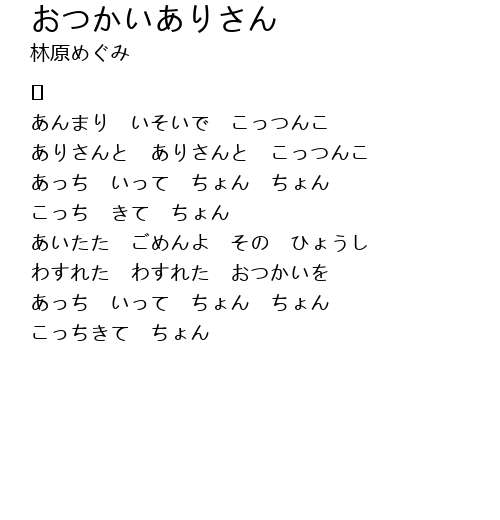 おつかいありさん
林原めぐみ
あんまり　いそいで　こっつんこ
ありさんと　ありさんと　こっつんこ
あっち　いって　ちょん　ちょん
こっち　きて　ちょん
あいたた　ごめんよ　その　ひょうし
わすれた　わすれた　おつかいを
あっち　いって　ちょん　ちょん
こっちきて　ちょん